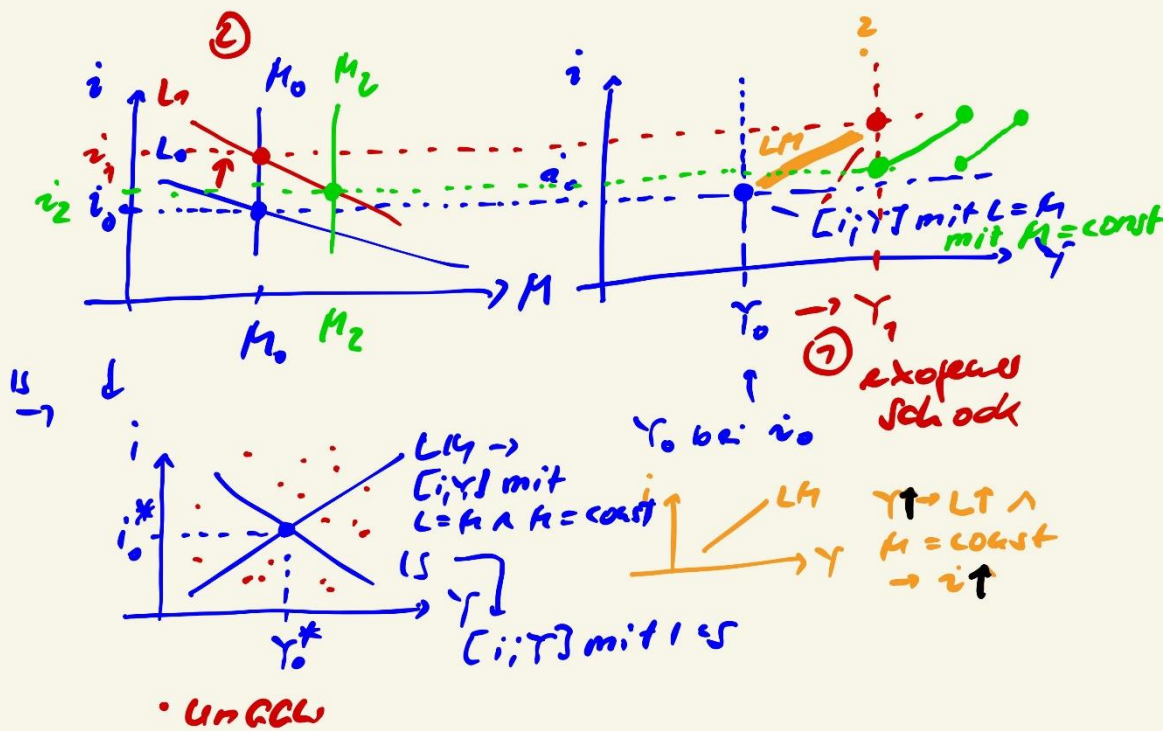 ②
i
L₁
M₀
M₂
i₁
L₀
i₂
i₀
M
M₀
M₂
i
2
LM
i₀
[i,Y] mit L = M
mit M = const
Y
Y₀ → Y₁
① exogener
Schock
Y₀ bei i₀
IS
→
i
i₀*
LM →
[i,Y] mit
L = M ∧ M = const
IS
Y
Y₀*
[i;Y] mit I = S
i
LM
Y
Y↑ → L↑ ∧
M = const
→ i↑